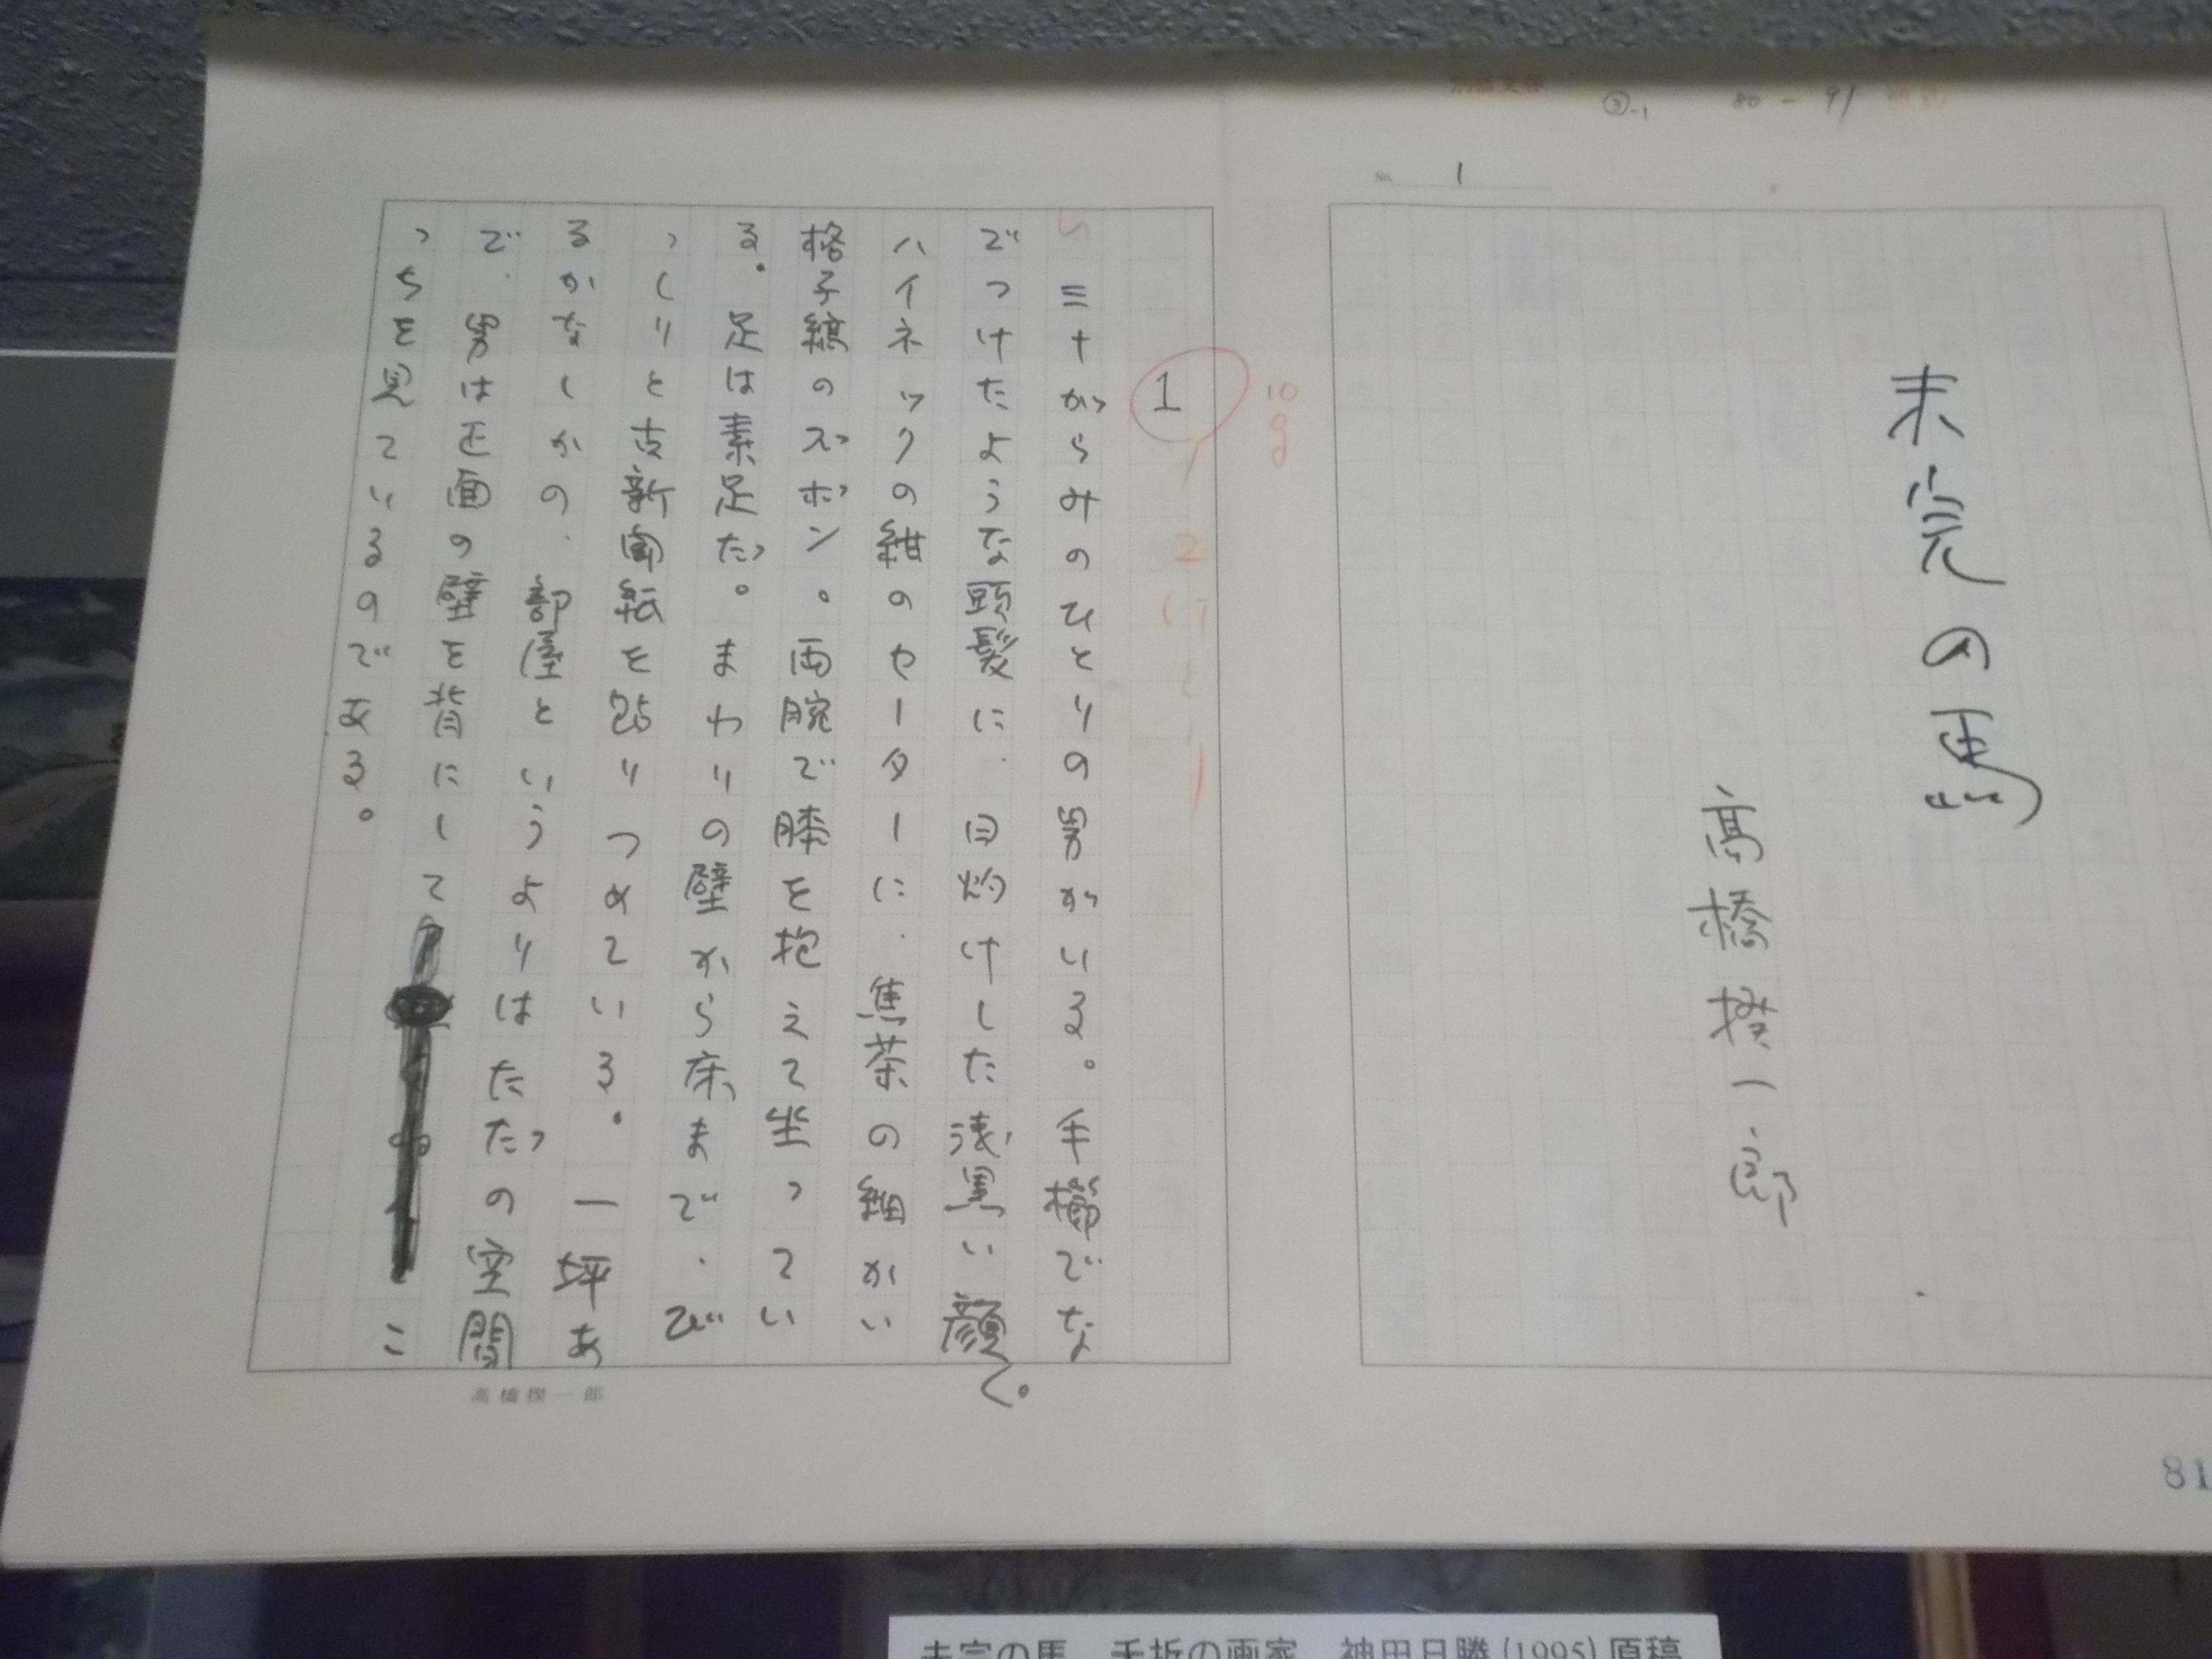 ③-1 80-91
No. 1
未完の馬
高橋揆一郎
81
10
9
1
2行とり
三十がらみのひとりの男がいる。手櫛でな
でつけたような頭髪に、日灼けした浅黒い顔。
ハイネックの紺のセーターに、焦茶の細かい
格子縞のズボン。両腕で膝を抱えて坐ってい
る。足は素足だ。まわりの壁から床まで、び
っしりと古新聞紙を貼りつめている。一坪あ
るかなしかの、部屋というよりはただの空間
で、男は正面の壁を背にして こ
っちを見ているのである。
高橋揆一郎
未完の馬 夭折の画家 神田日勝(1995)原稿